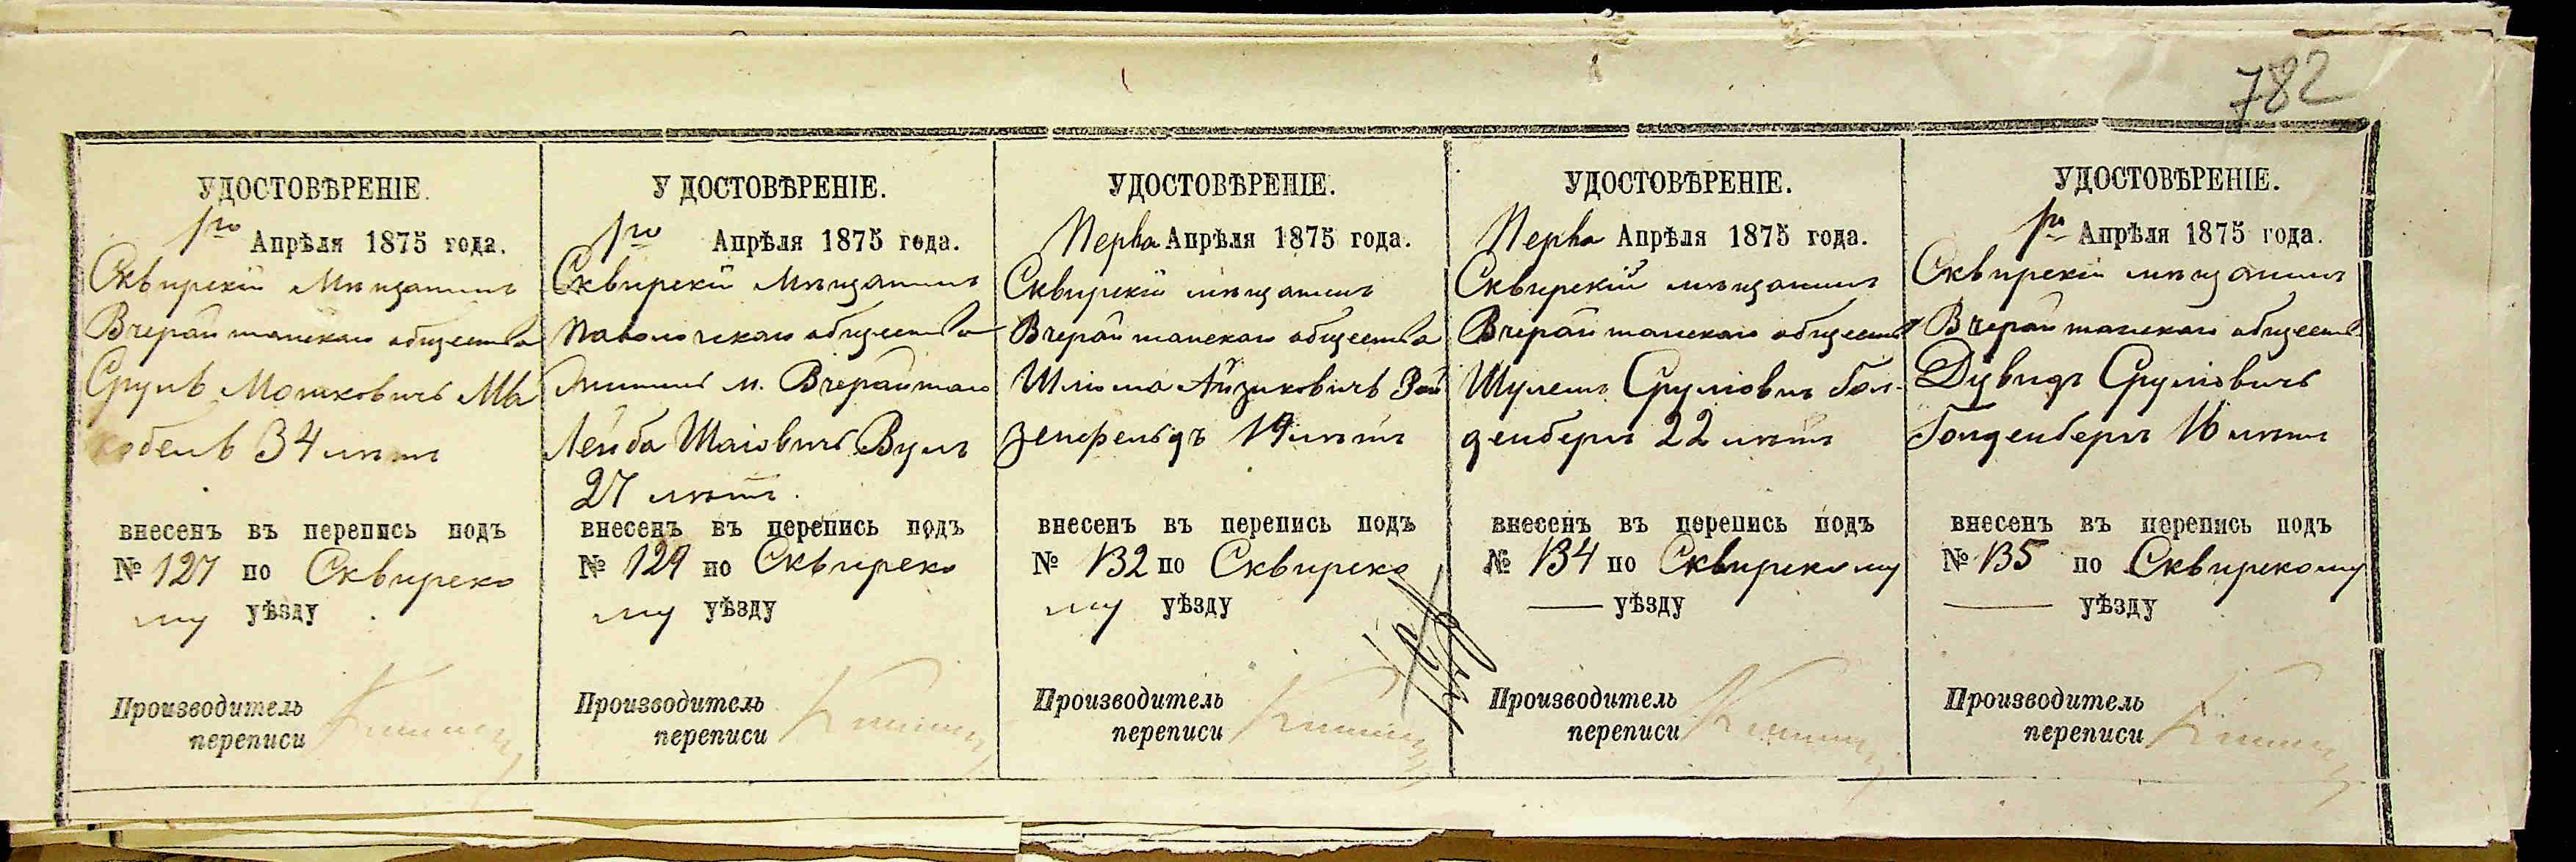 782
УДОСТОВѢРЕНІЕ.
1го Апрѣля 1875 года.
Сквирскій Мѣщанинъ
Вчерайшанскаго общества
Сруль Мошковичъ Ма
кобель 34 лѣтъ
внесенъ въ перепись подъ
№ 127 по Сквирско
му уѣзду
Производитель
переписи
УДОСТОВѢРЕНІЕ.
1го Апрѣля 1875 года.
Сквирскій Мѣщанинъ
Паволочскаго общества
м. Вчерайшаго
Лейба Шаіовичъ Вулъ
27 лѣтъ.
внесенъ въ перепись подъ
№ 129 по Сквирско
му уѣзду
Производитель
переписи
УДОСТОВѢРЕНІЕ.
Перва Апрѣля 1875 года.
Сквирскій мѣщанинъ
Вчерайшанскаго общества
Шліома Айзиковичъ Зай
зенфельдъ 19 лѣтъ
внесенъ въ перепись подъ
№ 132 по Сквирско
му уѣзду
Производитель
переписи
УДОСТОВѢРЕНІЕ.
Перва Апрѣля 1875 года.
Сквирскій мѣщанинъ
Вчерайшанскаго общества
Шулемъ Сруліовичъ Гол-
денбергъ 22 лѣтъ
внесенъ въ перепись подъ
№ 134 по Сквирскому
— уѣзду
Производитель
переписи
УДОСТОВѢРЕНІЕ.
1го Апрѣля 1875 года.
Сквирскій мѣщанинъ
Вчерайшанскаго обществ.
Дувидъ Сруліовичъ
Голденбергъ 16 лѣтъ
внесенъ въ перепись подъ
№ 135 по Сквирскому
— уѣзду
Производитель
переписи